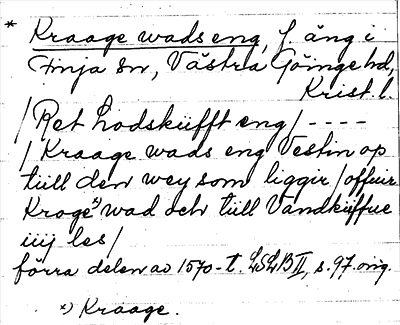 * Kraage wads eng, f. äng i
Finja sn, Västra Göinge hd,
Krist. l.
/Ret hodskiifft eng/ ----
/Kraage wads eng Vestin op
tiill den wey som liggir/offuir
Kroge x) wad och tiill Vandkiiffue
iiij les/
förra delen av 1570-t. LSLB II, s. 97. orig.
x) Kraage.